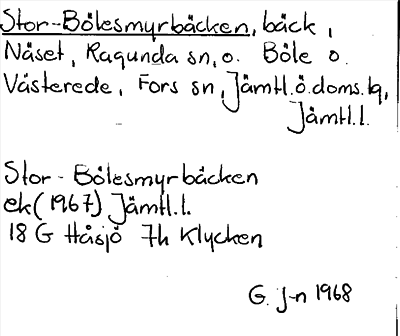 Stor-Bölesmyrbäcken, bäck,
Näset, Ragunda sn, o. Böle o.
Västerede, Fors sn, Jämtl.ö.doms.lq,
Jämtl.l.
Stor-Bölesmyrbäcken
ek (1967) Jämtl.l.
18 G Håsjö 7h Klycken
G. J-n 1968